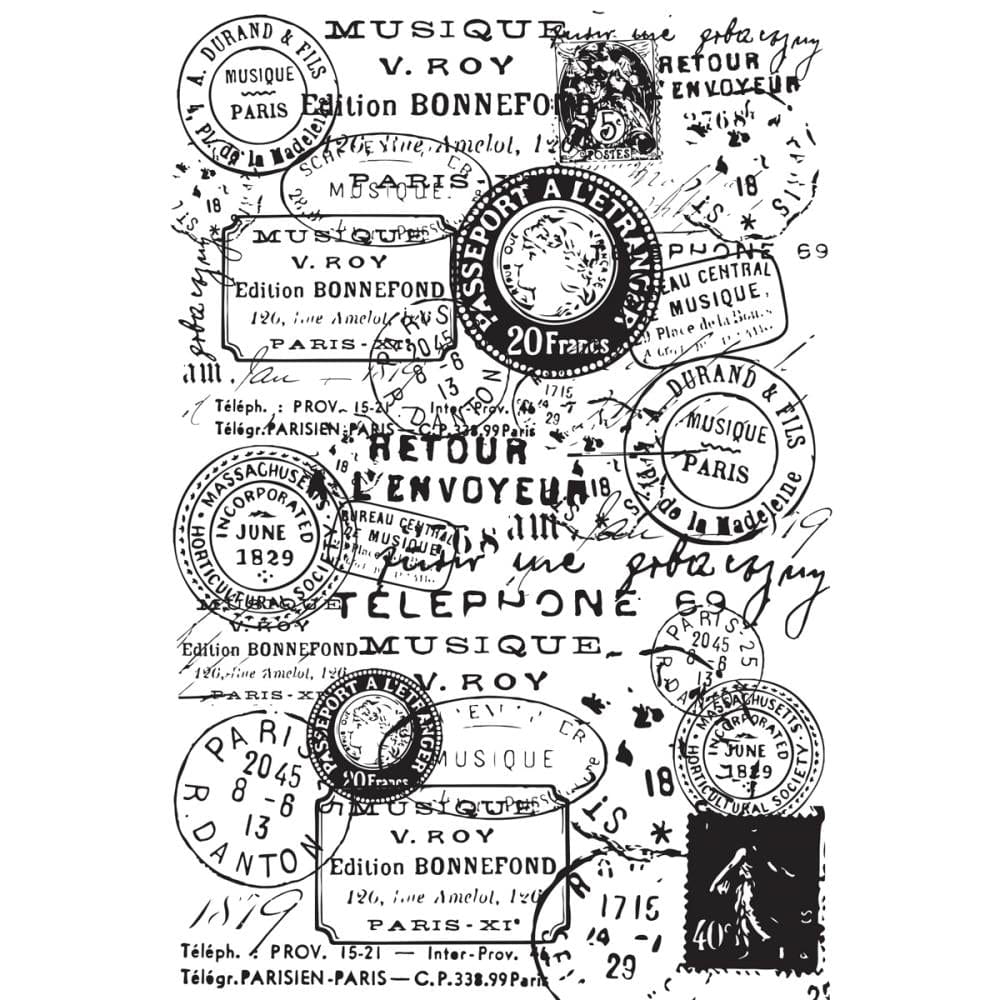 MUSIQUE
V. ROY
Edition BONNEFOND
126, Rue Amelot, 126
PARIS-XI
A. DURAND & FILS
4, Pl. de la Madeleine
MUSIQUE
PARIS
5c
POSTES
RETOUR
L'ENVOYEUR
2768
18
MUSIQUE
18
PASSEPORT A L'ETRANGER
REPUBLIQUE FRANÇAISE
20 Francs
TELEPHONE 69
MUSIQUE
V. ROY
Edition BONNEFOND
126, Rue Amelot, 126
PARIS-XIe
BUREAU CENTRAL
MUSIQUE,
Place de la
PARIS
2045
8-6
13
R. DANTON
am. Jan - 1819
1715
24 -7
29
Téléph. : PROV. 15-21 — Inter-Prov. 46
Télégr. PARISIEN-PARIS — C.P. 338.99 Paris
A. DURAND & FILS
4, Pl. de la Madeleine
MUSIQUE
PARIS
RETOUR
L'ENVOYEUR
18
18
MASSACHUSETTS
HORTICULTURAL SOCIETY
INCORPORATED
JUNE
1829
BUREAU CENTRAL
DE MUSIQUE
Place de la
68
am. Jan 19
TELEPHONE 69
MUSIQUE
V. ROY
Edition BONNEFOND
126, Rue Amelot, 126
PARIS-XI
MUSIQUE
V. ROY
PARIS-25
2045
8-6
13
PASSEPORT A L'ETRANGER
20 Francs
MUSIQUE
MASSACHUSETTS
HORTICULTURAL SOCIETY
INCORPORATED
JUNE
1829
PARIS
2045
8-6
13
R. DANTON
18
MUSIQUE
V. ROY
Edition BONNEFOND
126, Rue Amelot, 126
PARIS-XIe
1715
24 -7
29
40c
1819
Téléph. : PROV. 15-21 — Inter-Prov. 46
Télégr. PARISIEN-PARIS — C.P. 338.99 Paris